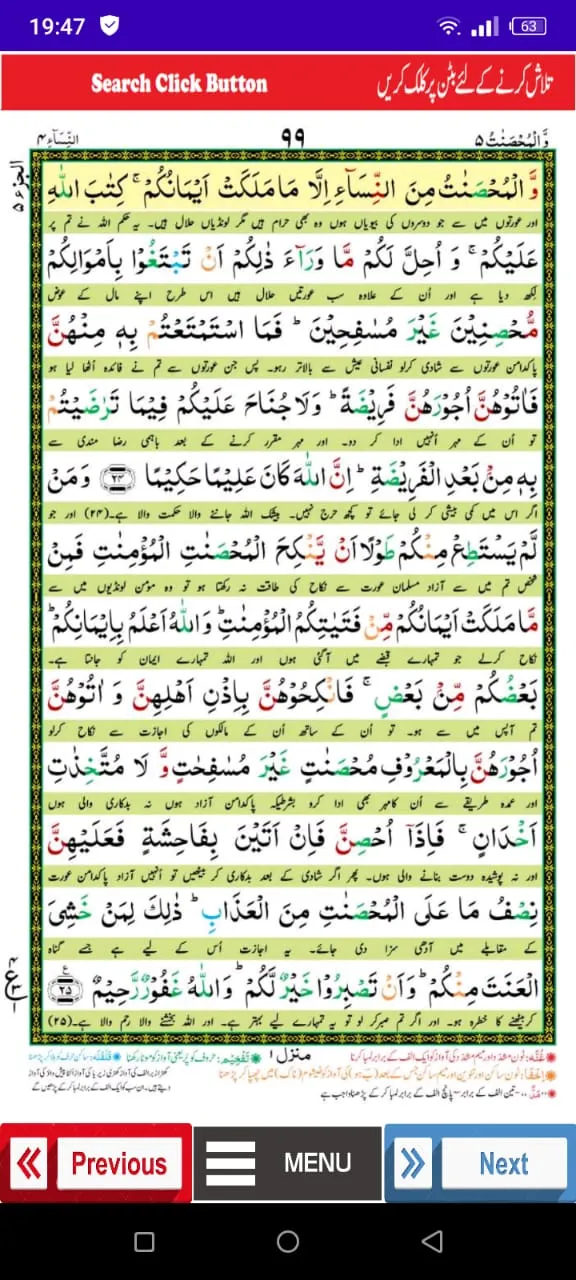 19:47
63
Search Click Button
تلاش کرنے کے لئے بٹن پر کلک کریں
النِّسَآءِ ۴
۹۹
وَالْمُحْصَنٰتُ ۵
الجزء ۵
وَّ الْمُحْصَنٰتُ مِنَ النِّسَآءِ اِلَّا مَا مَلَكَتْ اَيْمَانُكُمْ ۚ كِتٰبَ اللّٰهِ
اور عورتوں میں سے جو دوسروں کی بیویاں ہوں وہ بھی حرام ہیں مگر لونڈیاں حلال ہیں۔ یہ حکم اللہ نے تم پر
عَلَيْكُمْ ۚ وَ اُحِلَّ لَكُمْ مَّا وَرَآءَ ذٰلِكُمْ اَنْ تَبْتَغُوْا بِاَمْوَالِكُمْ
لکھ دیا ہے اور اُن کے علاوہ سب عورتیں حلال ہیں اس طرح اپنے مال کے عوض
مُّحْصِنِيْنَ غَيْرَ مُسٰفِحِيْنَ ؕ فَمَا اسْتَمْتَعْتُمْ بِهٖ مِنْهُنَّ
پاکدامن عورتوں سے شادی کرلو نفسانی عیش سے بالاتر رہو۔ پس جن عورتوں سے تم نے فائدہ اُٹھا لیا ہو
فَاٰتُوْهُنَّ اُجُوْرَهُنَّ فَرِيْضَةً ؕ وَلَا جُنَاحَ عَلَيْكُمْ فِيْمَا تَرٰضَيْتُمْ
تو اُن کے مہر اُنہیں ادا کر دو۔ اور مہر مقرر کرنے کے بعد باہمی رضا مندی سے
بِهٖ مِنْۢ بَعْدِ الْفَرِيْضَةِ ؕ اِنَّ اللّٰهَ كَانَ عَلِيْمًا حَكِيْمًا ۲۴ وَمَنْ
اگر اس میں کمی بیشی کر لی جائے تو کچھ حرج نہیں۔ بیشک اللہ جاننے والا حکمت والا ہے۔(۲۴) اور جو
لَّمْ يَسْتَطِعْ مِنْكُمْ طَوْلًا اَنْ يَّنْكِحَ الْمُحْصَنٰتِ الْمُؤْمِنٰتِ فَمِنْ
شخص تم میں سے آزاد مسلمان عورت سے نکاح کی طاقت نہ رکھتا ہو تو وہ مؤمن لونڈیوں میں سے
مَّا مَلَكَتْ اَيْمَانُكُمْ مِّنْ فَتَيٰتِكُمُ الْمُؤْمِنٰتِ ؕ وَاللّٰهُ اَعْلَمُ بِاِيْمَانِكُمْ ؕ
نکاح کرلے جو تمہارے قبضے میں آگئی ہوں اور اللہ تمہارے ایمان کو جانتا ہے۔
بَعْضُكُمْ مِّنْۢ بَعْضٍ ۚ فَانْكِحُوْهُنَّ بِاِذْنِ اَهْلِهِنَّ وَ اٰتُوْهُنَّ
تم آپس میں سے ہو۔ تو اُن کے ساتھ اُن کے مالکوں کی اجازت سے نکاح کرلو
اُجُوْرَهُنَّ بِالْمَعْرُوْفِ مُحْصَنٰتٍ غَيْرَ مُسٰفِحٰتٍ وَّ لَا مُتَّخِذٰتِ
اور عمدہ طریقے سے اُن کا مہر بھی ادا کرو بشرطیکہ پاکدامن آزاد ہوں نہ بدکاری والی ہوں
اَخْدَانٍ ۚ فَاِذَاۤ اُحْصِنَّ فَاِنْ اَتَيْنَ بِفَاحِشَةٍ فَعَلَيْهِنَّ
اور نہ پوشیدہ دوست بنانے والی ہوں۔ پھر اگر شادی کے بعد بدکاری کر بیٹھیں تو اُنہیں آزاد پاکدامن عورت
نِصْفُ مَا عَلَى الْمُحْصَنٰتِ مِنَ الْعَذَابِ ؕ ذٰلِكَ لِمَنْ خَشِىَ
کے مقابلے میں آدھی سزا دی جائے۔ یہ اجازت اُس کے لیے ہے جسے گناہ
الْعَنَتَ مِنْكُمْ ؕ وَاَنْ تَصْبِرُوْا خَيْرٌ لَّكُمْ ؕ وَاللّٰهُ غَفُوْرٌ رَّحِيْمٌ ۲۵
کر بیٹھنے کا خطرہ ہو۔ اور اگر تم صبر کر لو تو یہ تمہارے لیے بہتر ہے۔ اور اللہ بخشنے والا رحم والا ہے۔(۲۵)
منزل ۱
Previous
MENU
Next